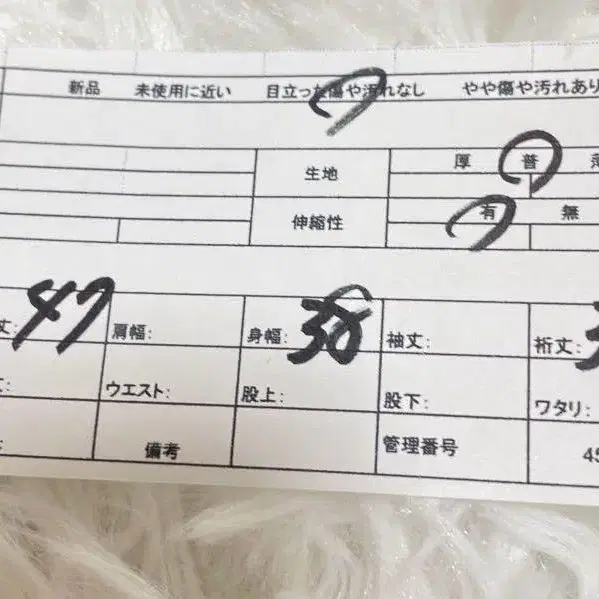 新品 未使用に近い 目立った傷や汚れなし やや傷や汚れあり
生地 厚 普 薄
伸縮性 有 無
丈: 47 肩幅: 身幅: 38 袖丈: 裄丈: 3
丈: ウエスト: 股上: 股下: ワタリ:
備考 管理番号 45